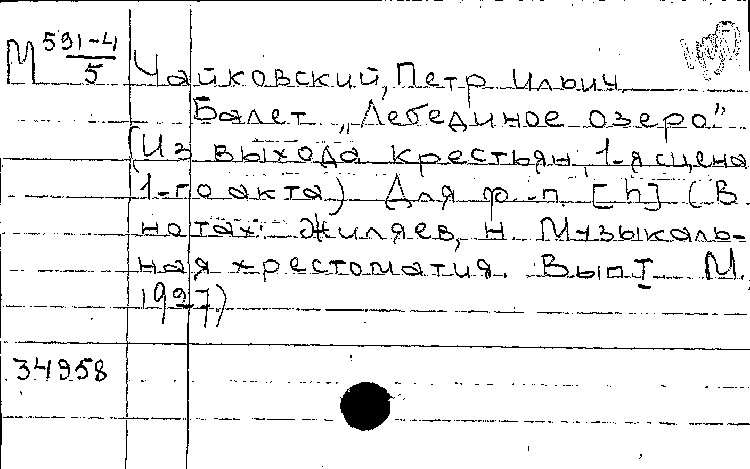 М 591-4/5
Чайковский, Петр Ильич.
Балет „Лебединое озеро"
(Из выхода крестьян, 1-я сцена
1-го акта) Для ф.-п. [h] (В
нотах: Жиляев, Н. Музыкаль-
ная хрестоматия. Вып I М.,
1927)
34958